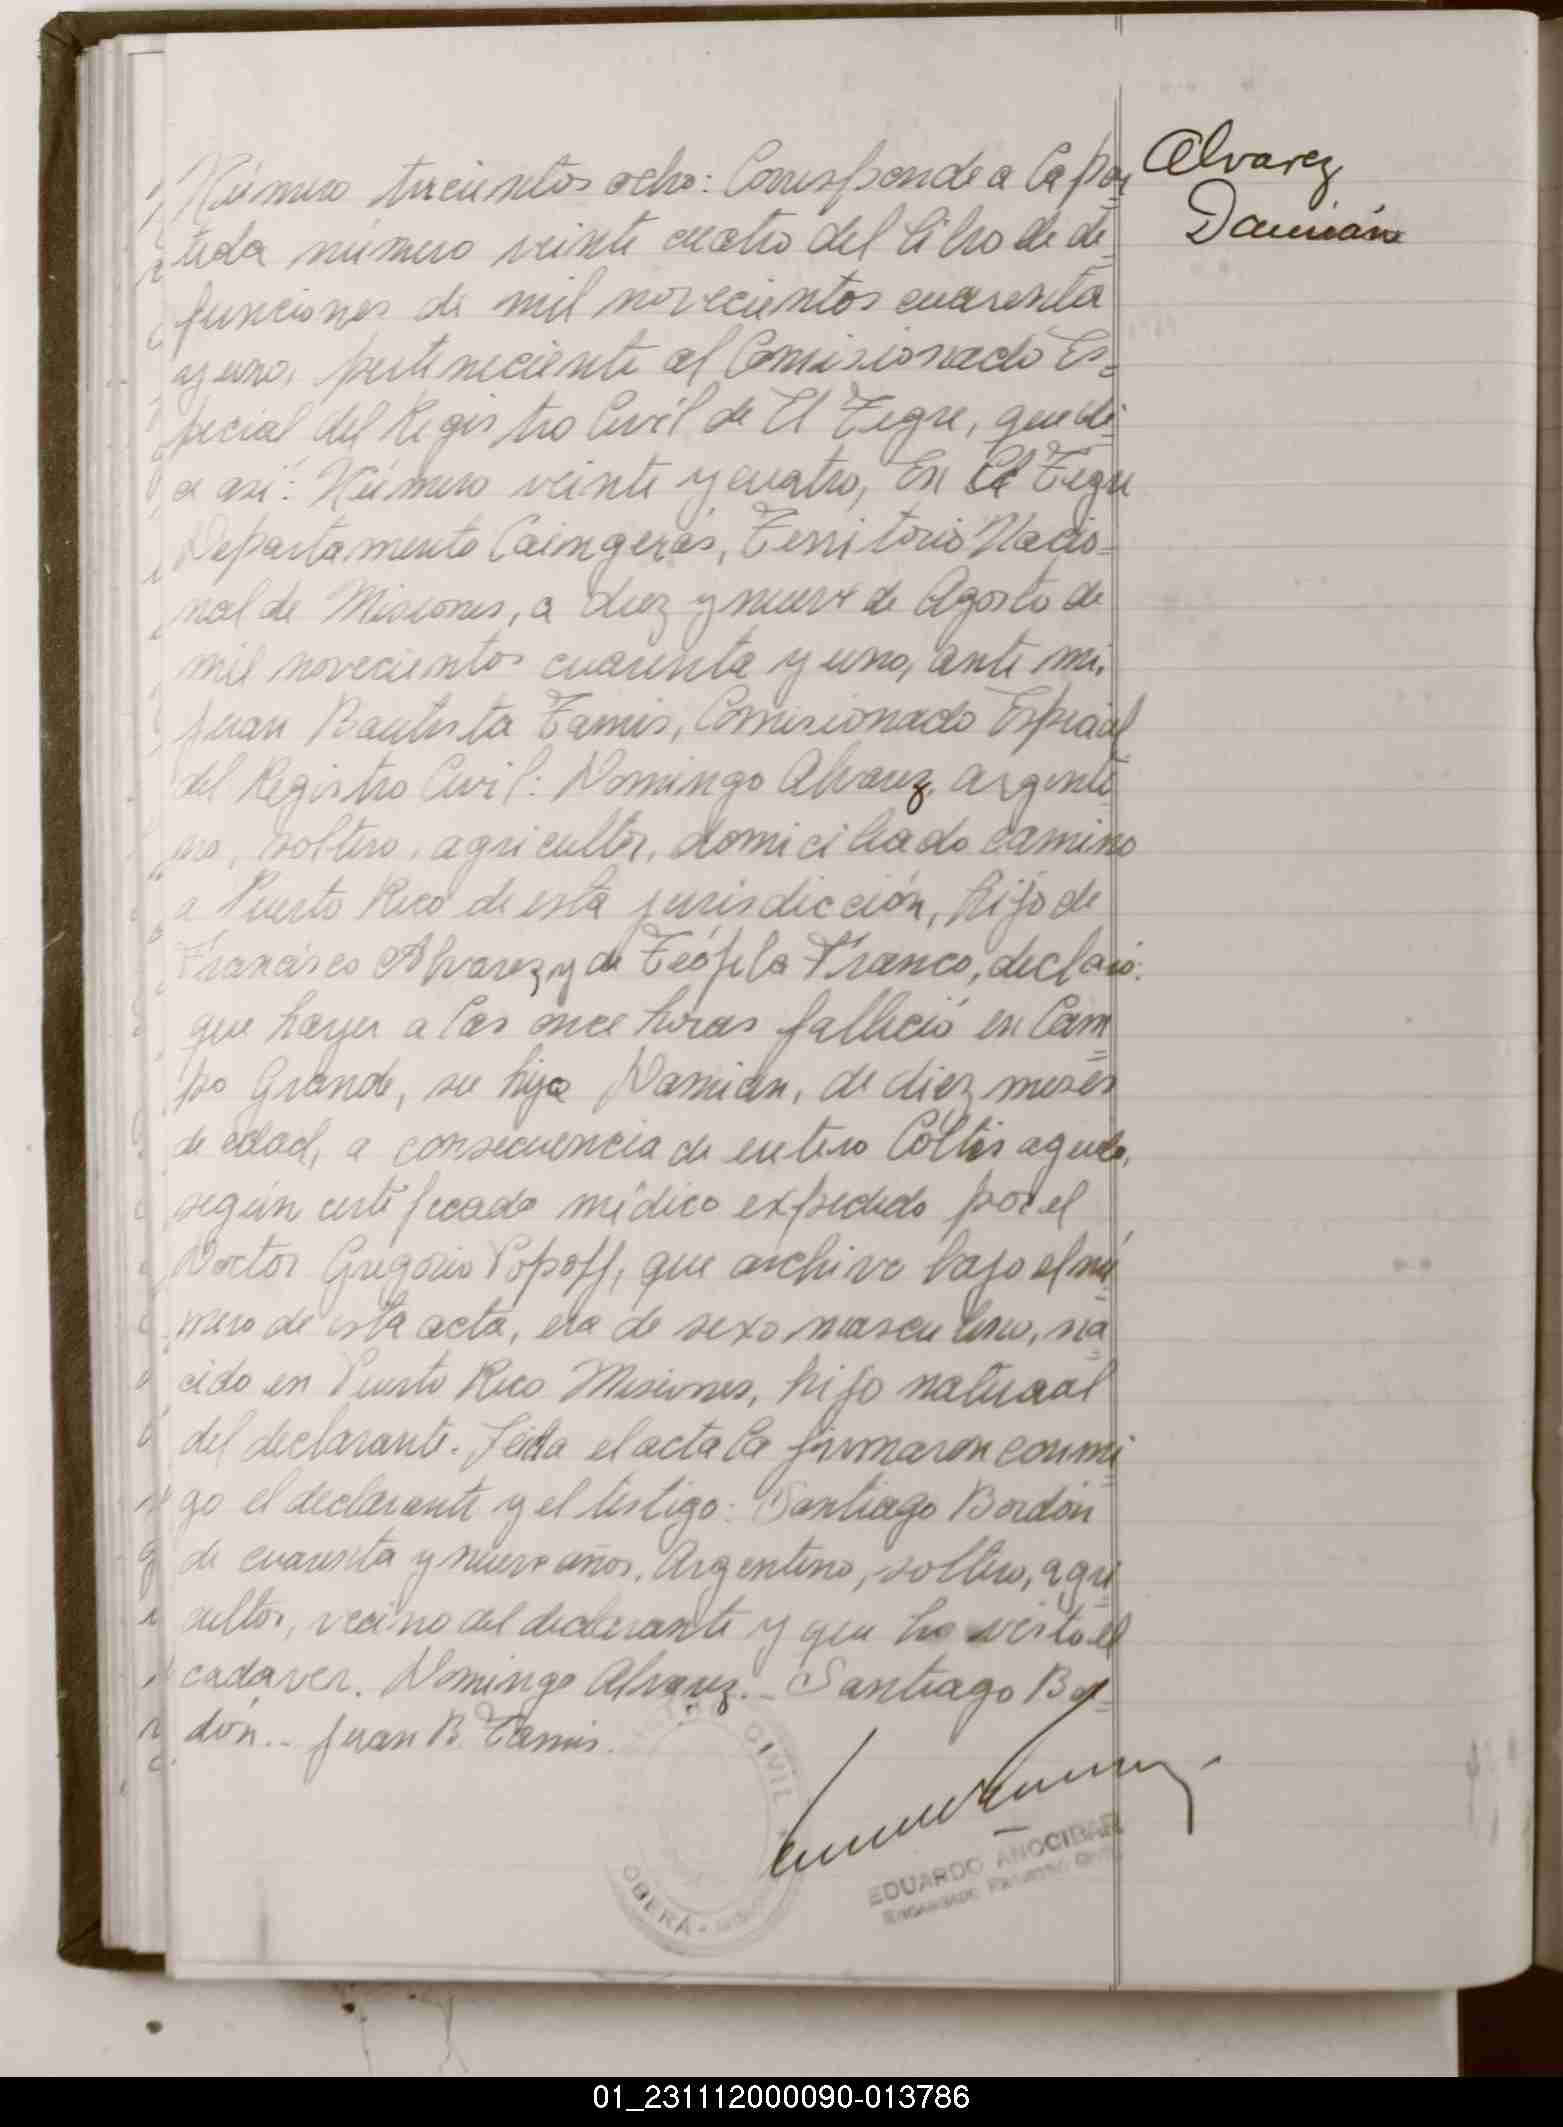 Alvarez
Damián
Número trescientos ocho: Corresponde a la par
tida número veinte cuatro del libro de de=
funciones de mil novecientos cuarenta
y uno, perteneciente al Comisionado Es=
pecial del Registro Civil de El Tigre, que di
ce así: Número veinte y cuatro, En El Tigre
Departamento Caingúas, Territorio Nacio=
nal de Misiones, a diez y nueve de Agosto de
mil novecientos cuarenta y uno, ante mi,
Juan Bautista Tamis, Comisionado Especial
del Registro Civil: Domingo Alvarez, argenti
no, soltero, agricultor, domiciliado camino
a Puerto Rico de esta jurisdicción, hijo de
Francisco Alvarez y de Teófila Franco, declaró:
que hayer a las once horas falleció en Cam=
po Grande, su hijo Damian, de diez meses
de edad, a consecuencia de entero Cólitis aguda,
según certificado médico expedido por el
Doctor Gregorio Popoff, que archivo bajo el nú
mero de esta acta, era de sexo masculino, na
cido en Puerto Rico Misiones, hijo natural
del declarante. Leida el acta la firmaron conmi
go el declarante y el testigo: Santiago Bordón
de cuarenta y nueve años, Argentino, soltero, agri
cultor, vecino del declarante y que ha visto el
cadaver. Domingo Alvarez.- Santiago Bor=
dón.- Juan B. Tamis.
CIVIL
OBERÁ -
EDUARDO AÑOCIBAR
01_231112000090-013786